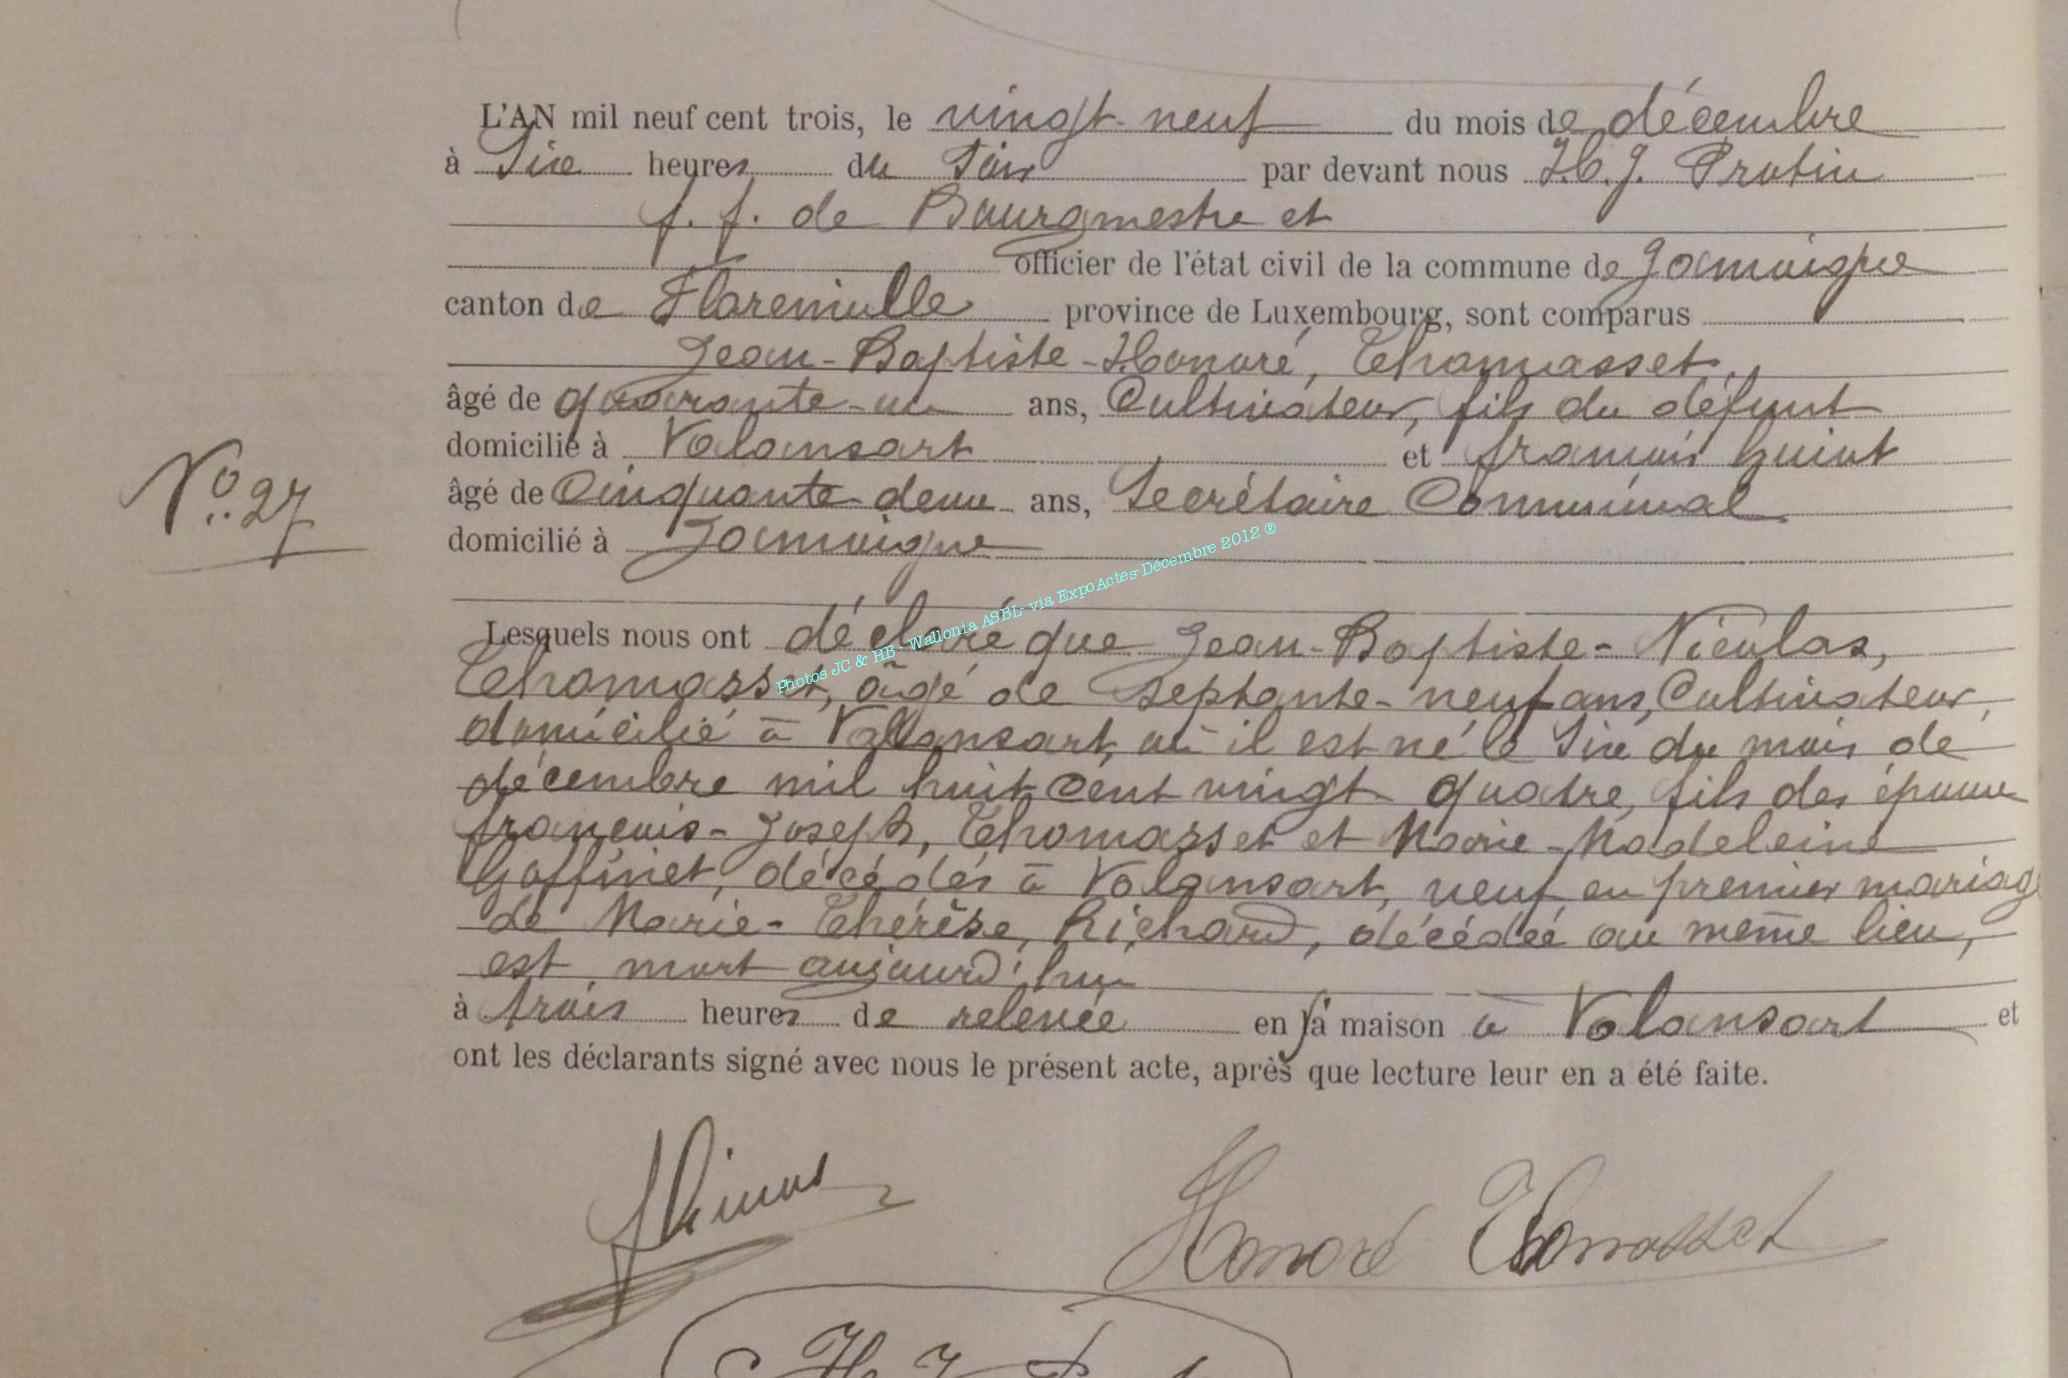 L'AN mil neuf cent trois, le vingt-neuf du mois de décembre
à Six heures du Soir par devant nous H. J. Protin
f. f. de Bourgmestre et
officier de l'état civil de la commune de Jamoigne
canton de Florenville province de Luxembourg, sont comparus
Jean-Baptiste-Honoré, Thomasset,
âgé de quarante-un ans, Cultivateur, fils du défunt
domicilié à Valansart et françois
âgé de Cinquante-deux ans, Secrétaire Communal
domicilié à Jamoigne
N° 27
Lesquels nous ont déclaré que Jean-Baptiste-Nicolas,
Thomasset, âgé de Septante-neuf ans, Cultivateur,
domicilié à Valansart, où il est né le Six du mois de
décembre mil huit cent vingt quatre, fils des époux
françois-Joseph, Thomasset et Marie-Madeleine
Goffinet, décédés à Valansart, veuf en premier mariage
de Marie-Thérèse, Richard, décédée au même lieu,
est mort aujourd'hui
à trois heures de relevée en sa maison à Valansart et
ont les déclarants signé avec nous le présent acte, après que lecture leur en a été faite.
Honoré Thomasset
Photos JC & HB - Wallonia ASBL- via ExpoActes Décembre 2012 ®